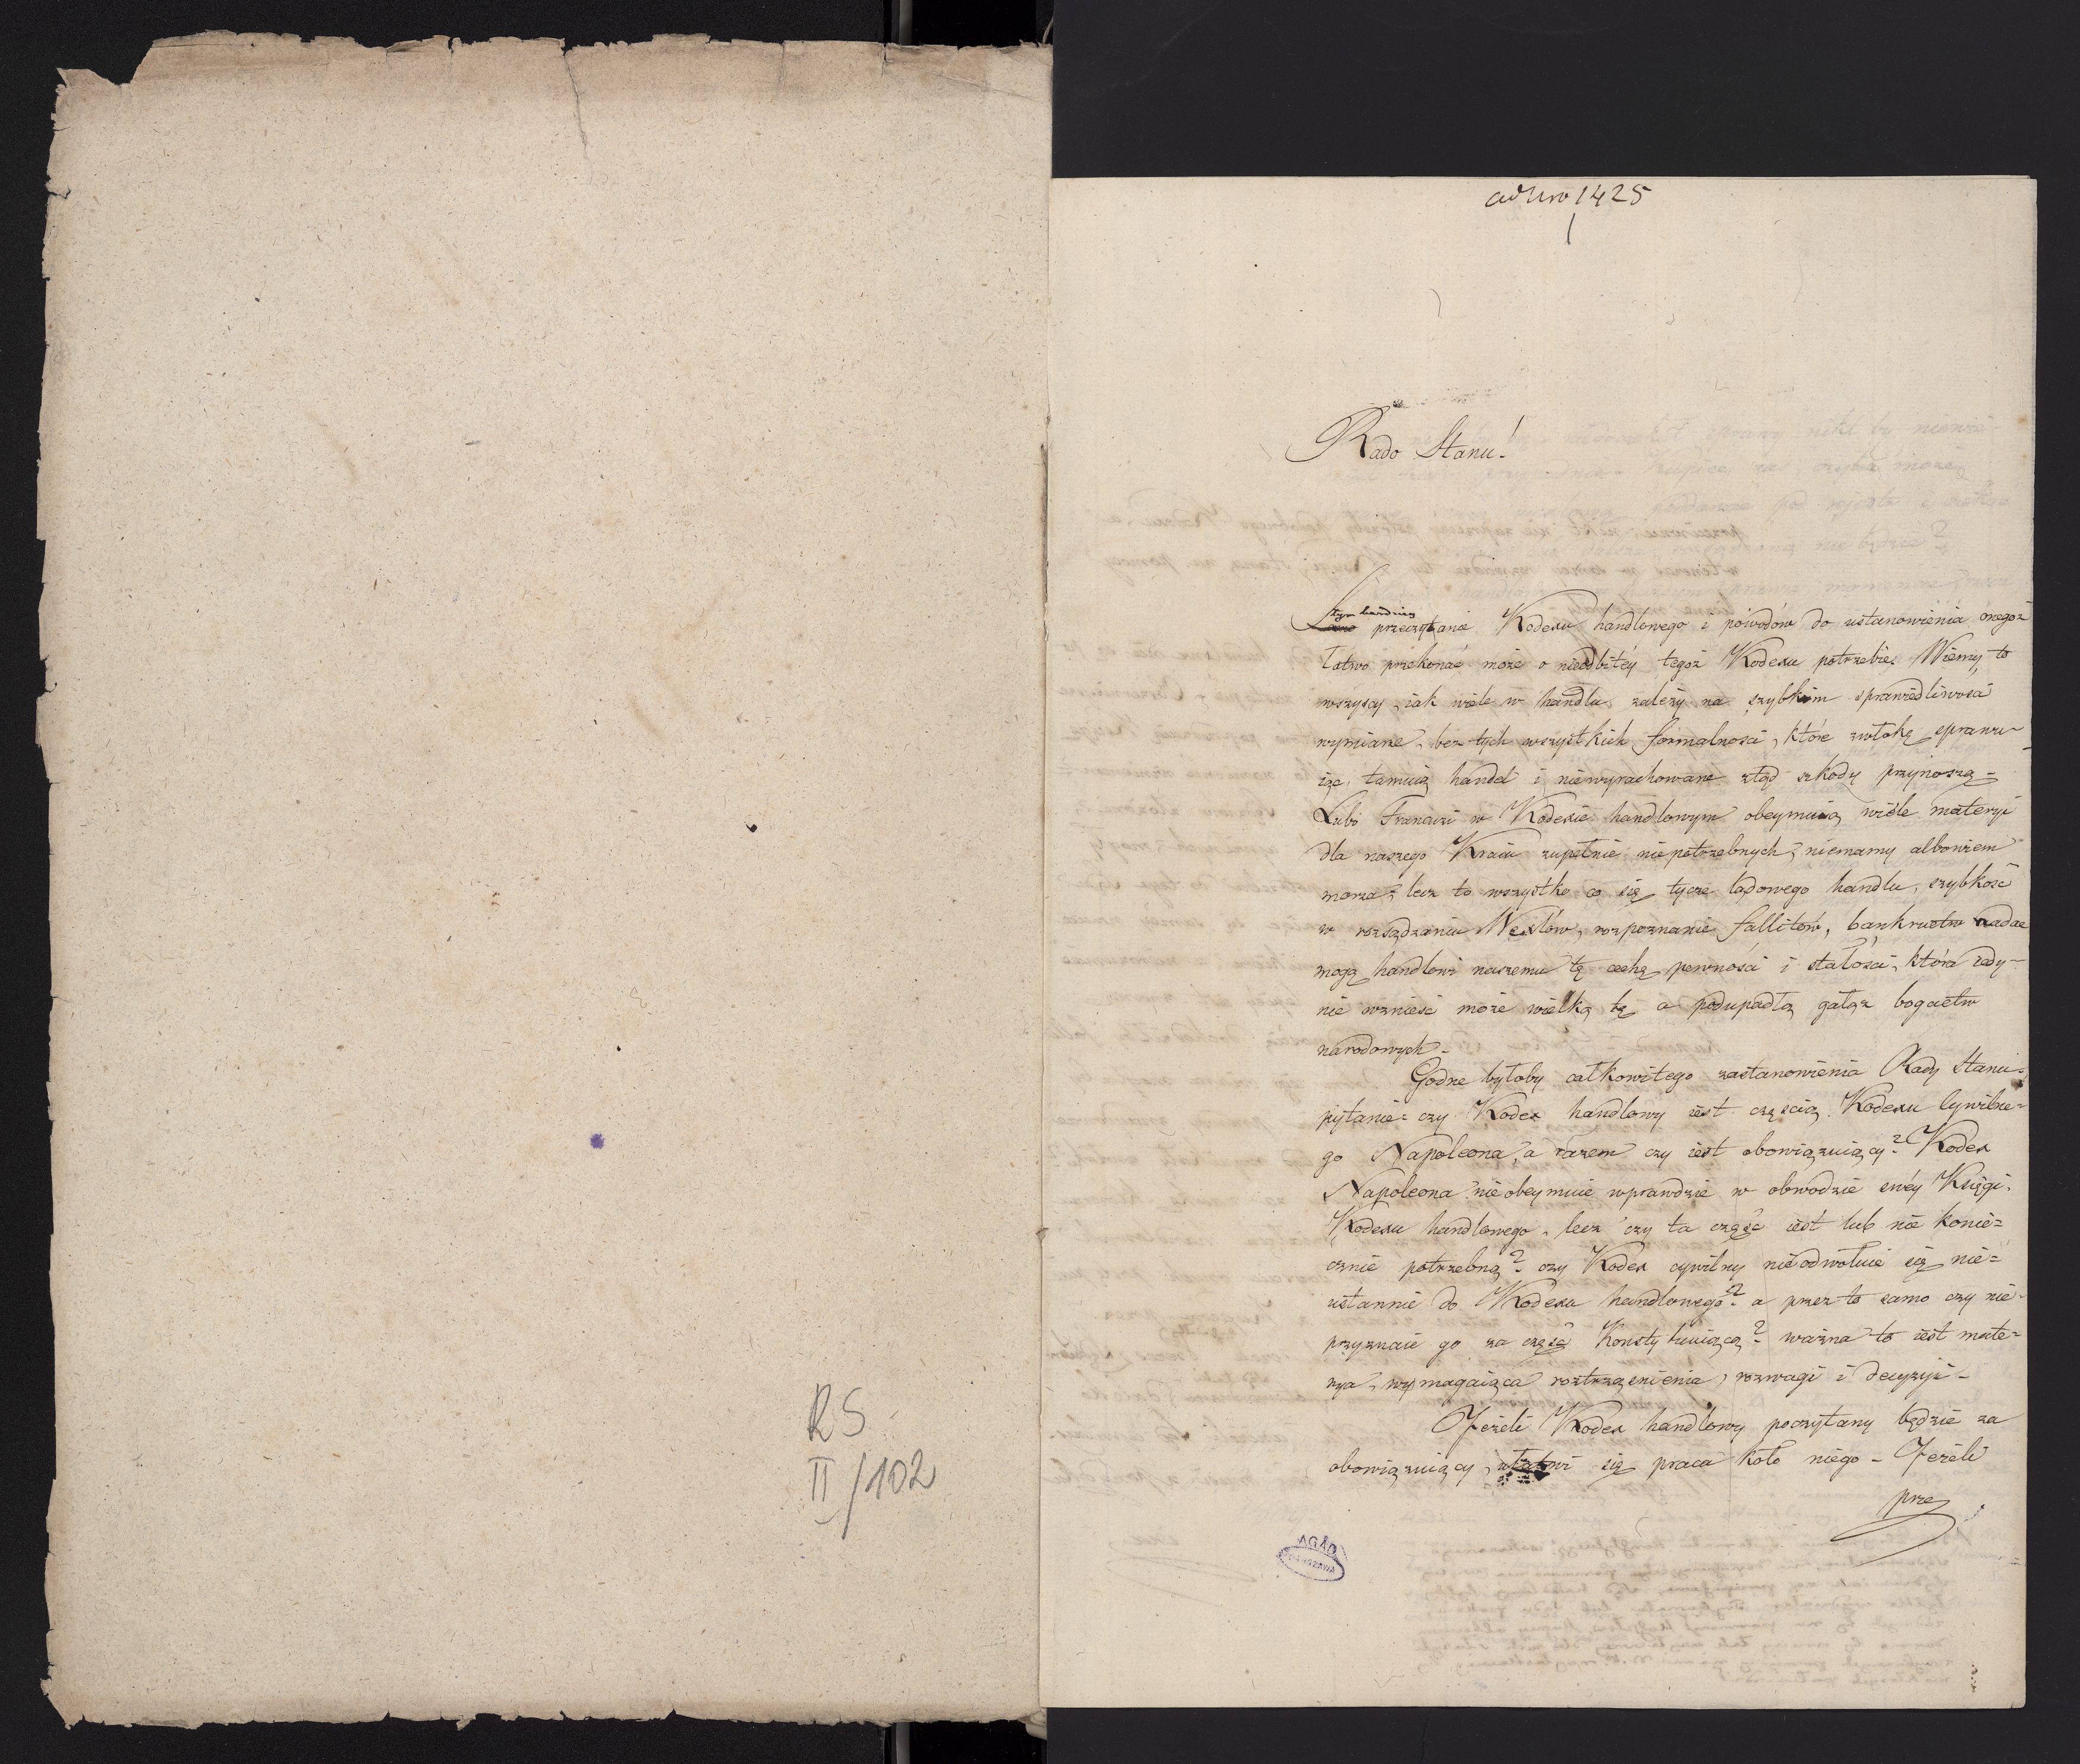 RS
II/102
ad Nro 1425
1
Rado Stanu!
tym bardziey
przeczytanie Kodexu handlowego i powodów do ustanowienia onegoż
łatwo przekonać może o nieodbitéy tegoż Kodexu potrzebie. Wiemy to
wszyscy, iak wiele w handlu zależy na szybkim sprawiedliwości
wymiarze, bez tych wszystkich formalności, które zwłokę sprawu-
iąc, tamuią handel i niewyrachowane ztąd szkody przynoszą-
Lubo Francuzi w Kodexie handlowym obeymuią wiele materyi
dla naszego Kraiu zupełnie niepotrzebnych, niemamy albowiem
morza; lecz to wszystko co się tycze lądowego handlu, szybkość
w rozsądzaniu Wexlów, rozpoznanie fallitów, bankructw nadać
mogą handlowi naszemu tę cechę pewności i stałości, która iedy-
nie wznieść może wielką tę a podupadłą gałąź bogactw
narodowych-
Godne byłoby całkowitego zastanowienia Rady Stanu
pytanie: czy Kodex handlowy iest częścią Kodexu Cywilne-
go Napoleona, a razem czy iest obowiązuiący? Kodex
Napoleona nieobeymuie wprawdzie w obwodzie swéy Księgi,
Kodexu handlowego, lecz czy ta część iest lub nie konie=
cznie potrzebną? czy Kodex cywilny nieodwołuie się nie=
ustannie do Kodexu handlowego? a przez to samo czy nie
przyznaie go za część Konstytuuiącą? ważna to iest mate=
rya, wymagaiąca roztrząśnienia, rozwagi i decyzyi-
Jeżeli Kodex handlowy poczytany będzie za
obowiązuiący, ułatwi się praca koło niego - Jeżeli
prze
AGAD
WARSZAWA